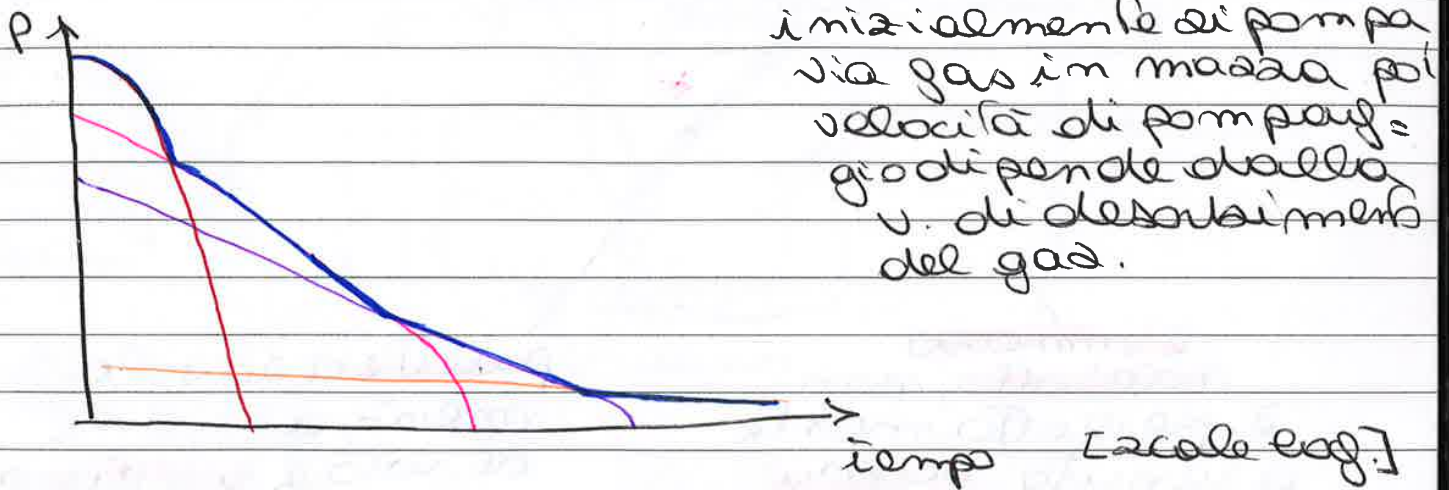 P
inizialmente si pompa
via gas in massa poi
velocità di pompag=
gio dipende dalla
v. di desorbimento
del gas.
tempo [scale log.]